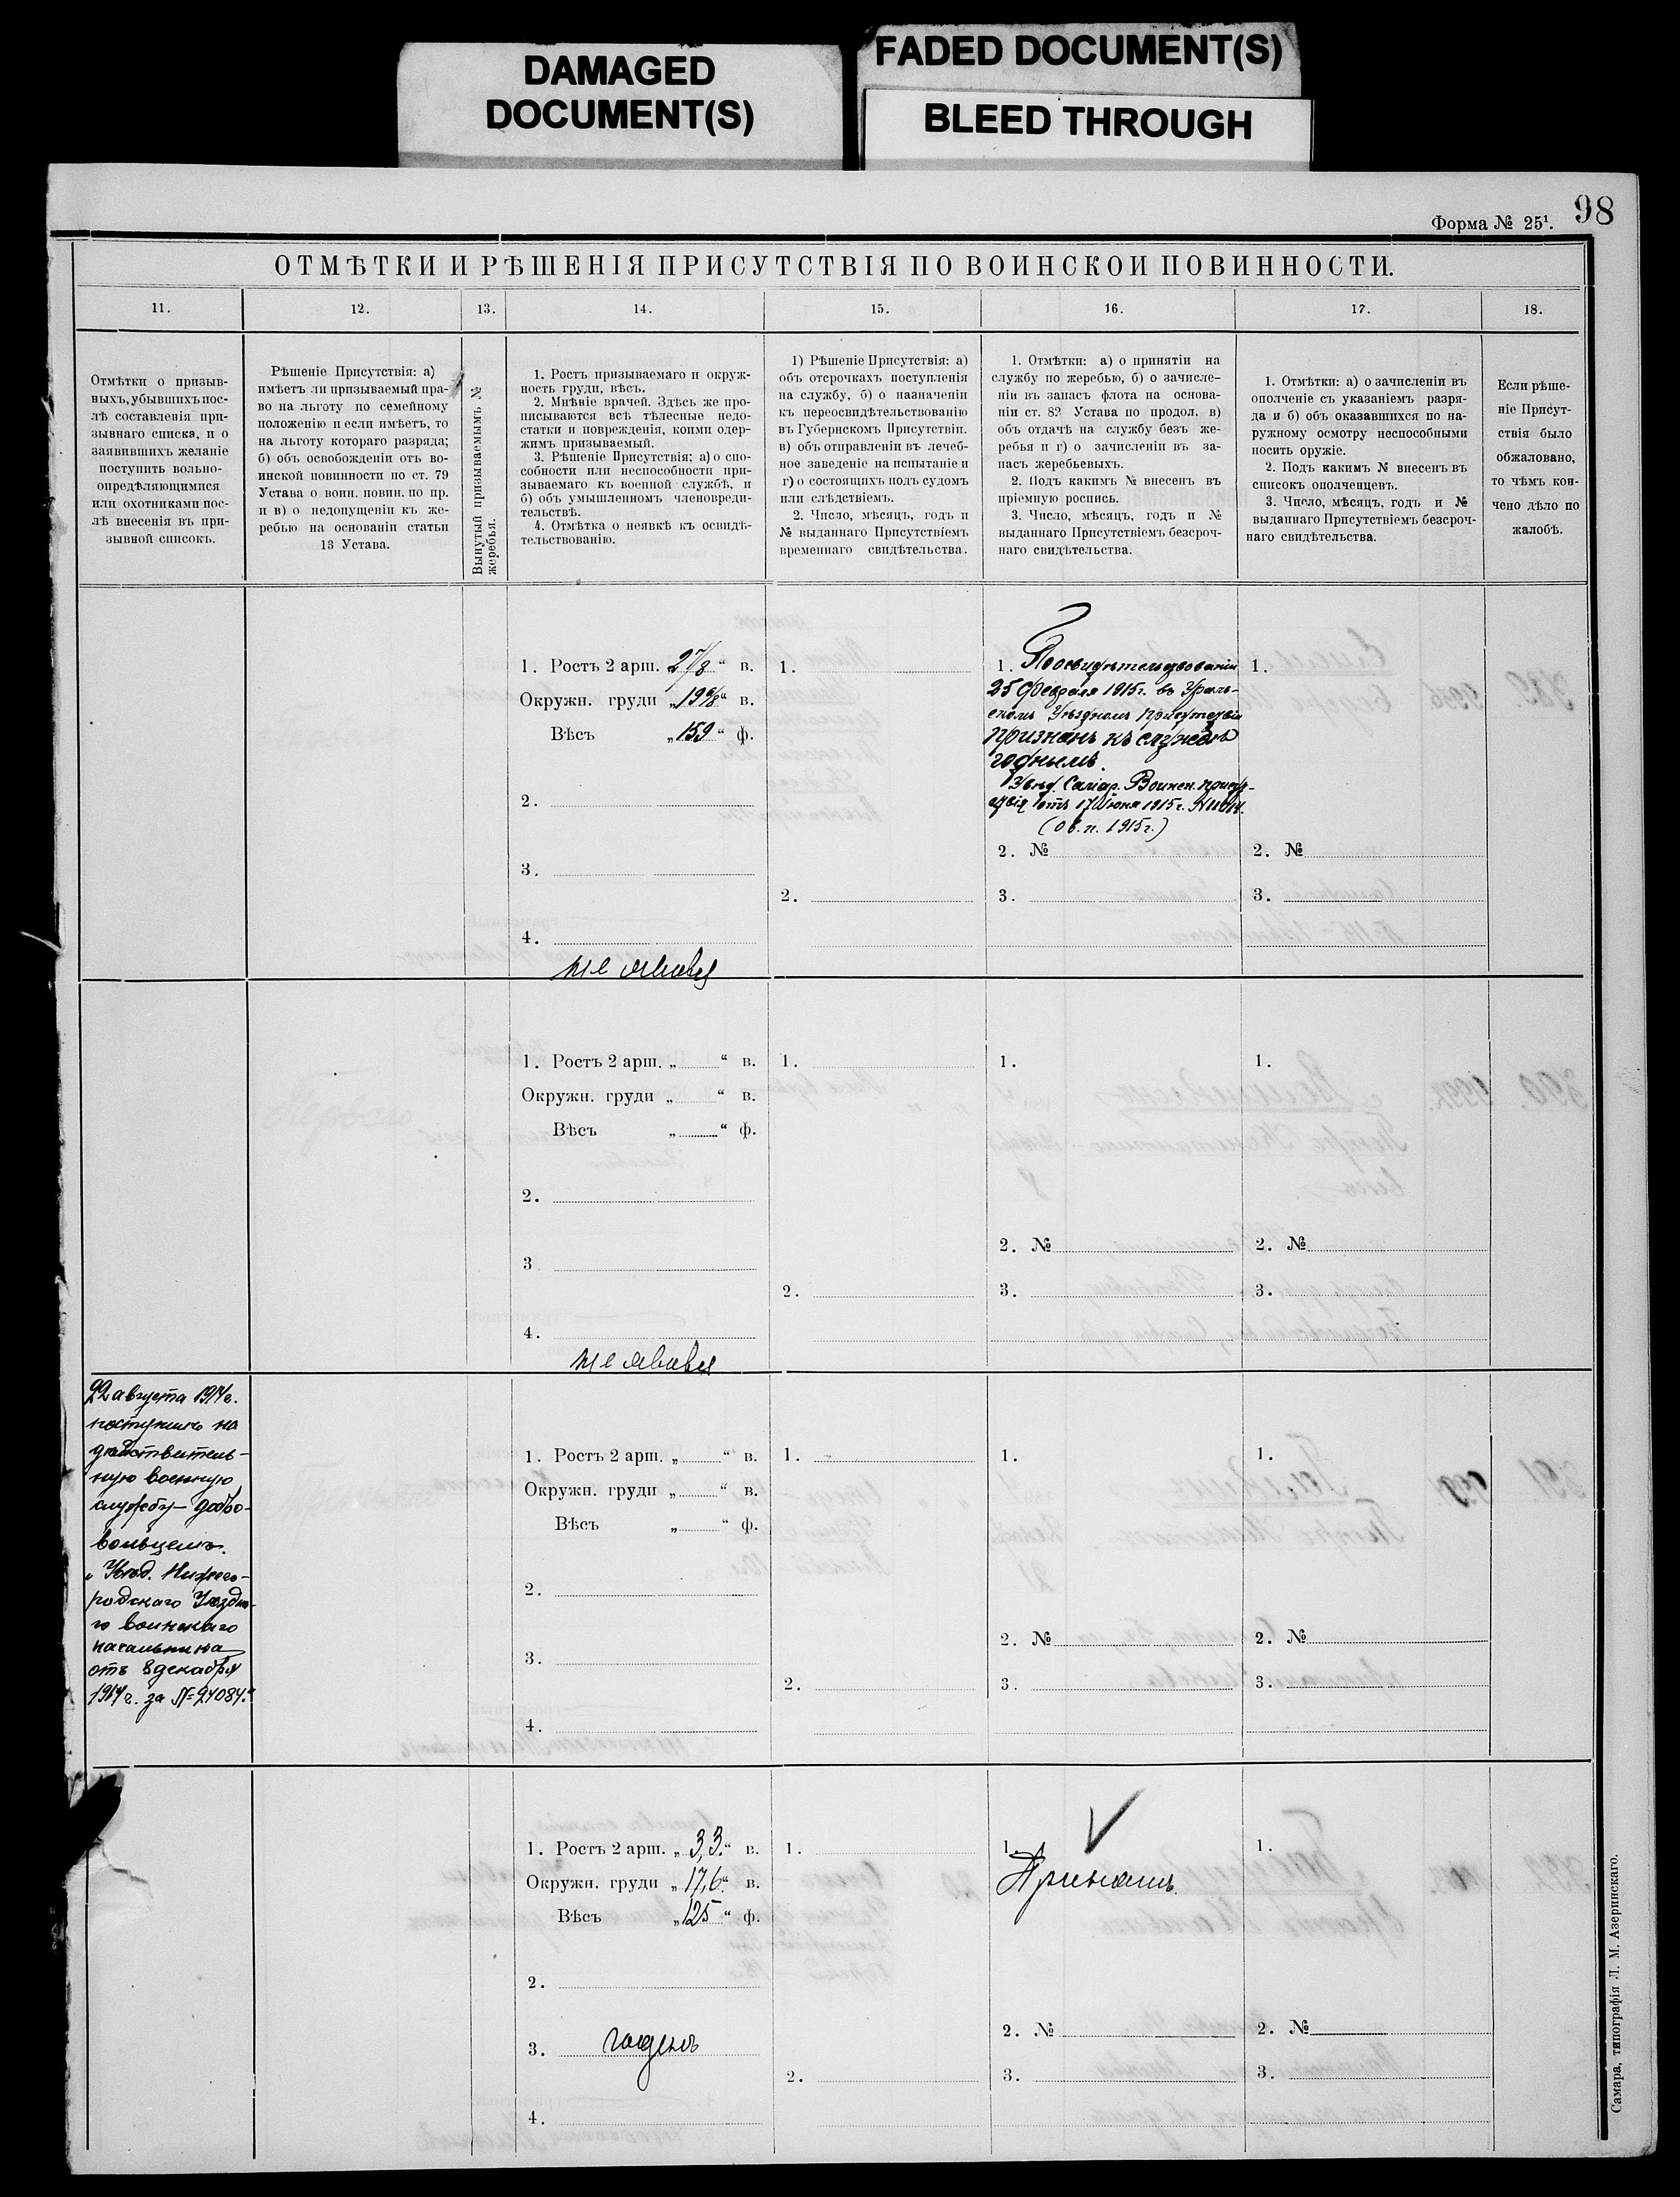 DAMAGED
DOCUMENT(S)
FADED DOCUMENT(S)
BLEED THROUGH
98
Форма № 25¹.
ОТМѢТКИ И РѢШЕНІЯ ПРИСУТСТВІЯ ПО ВОИНСКОИ ПОВИННОСТИ.
11.
12.
13.
14.
15.
16.
17.
18.
Отмѣтки о призыв-
ныхъ, убывшихъ пос-
лѣ составленія при-
зывнаго списка, и о
заявившихъ желаніе
поступить вольно-
опредѣляющимися
или охотниками пос-
лѣ внесенія въ при-
зывной списокъ.
Рѣшеніе Присутствія: а)
имѣетъ ли призываемый пра-
во на льготу по семейному
положенію и если имѣетъ, то
на льготу котораго разряда;
б) объ освобожденіи отъ во-
инской повинности по ст. 79
Устава о воин. повин. по пр.
и в) о недопущеніи къ же-
ребью на основаніи статьи
13 Устава.
Вынутый призываемымъ №
жеребья.
1. Ростъ призываемаго и окруж-
ность груди, вѣсъ.
2. Мнѣніе врачей. Здѣсь же про-
писываются всѣ тѣлесные недо-
статки и поврежденія, коими одер-
жимъ призываемый.
3. Рѣшеніе Присутствія; а) о спо-
собности или неспособности при-
зываемаго къ военной службѣ, и
б) объ умышленномъ членовреди-
тельствѣ.
4. Отмѣтка о неявкѣ къ освидѣ-
тельствованію.
1) Рѣшеніе Присутствія: а)
объ отсрочкахъ поступленія
на службу, б) о назначеніи
къ переосвидѣтельствованію
въ Губернскомъ Присутствіи.
в) объ отправленіи въ лечеб-
ное заведеніе на испытаніе и
г) о состоящихъ подъ судомъ
или слѣдствіемъ.
2. Число, мѣсяцъ, годъ и
№ выданнаго Присутствіемъ
временнаго свидѣтельства.
1. Отмѣтки: а) о принятіи на
службу по жеребью, б) о зачисле-
ніи въ запасъ флота на основа-
ніи ст. 82 Устава по продол. в)
объ отдачѣ на службу безъ же-
ребья и г) о зачисленіи въ за-
пасъ жеребьевыхъ.
2. Подъ какимъ № внесенъ въ
пріемную роспись.
3. Число, мѣсяцъ, годъ и №
выданнаго Присутствіемъ безсроч-
наго свидѣтельства.
1. Отмѣтки: а) о зачисленіи въ
ополченіе съ указаніемъ разря-
да и б) объ оказавшихся по на-
ружному осмотру неспособными
носить оружіе.
2. Подъ какимъ № внесенъ въ
списокъ ополченцевъ.
3. Число, мѣсяцъ, годъ и №
выданнаго Присутствіемъ безсроч-
наго свидѣтельства.
Если рѣше-
ніе Присут-
ствія было
обжаловано,
то чѣмъ кон-
чено дѣло по
жалобѣ.
1. Ростъ 2 арш. 2 7/8 “ в.
Окружн. груди „ 19 6/8 “ в.
Вѣсъ „ 159 “ ф.
2.
3.
4.
не явився
1.
2.
1. По освидѣтельствованіи
25 февраля 1915 г. въ Ураль-
скомъ Уѣздномъ присутствіи
признанъ къ службѣ
годнымъ.
Увѣд. Самар. Воинск. присут-
ствія отъ 17 іюня 1915 г.
(О в. п. 1915 г.)
2. №
3.
1.
2. №
3.
1. Ростъ 2 арш. „ “ в.
Окружн. груди „ “ в.
Вѣсъ „ “ ф.
2.
3
4.
не явився
1.
2.
1.
2. №
3.
1.
2. №
3.
22 августа 1914 г.
поступилъ на
дѣйствитель-
ную военную
службу — добро-
вольцемъ.
„ Увѣд. Нижего-
родскаго Уѣздна-
го воинскаго
начальника
отъ 8 декабря
1914 г. за № 24084.“
1. Ростъ 2 арш. „ “ в.
Окружн. груди „ “ в.
Вѣсъ „ “ ф.
2.
3.
4.
1.
2.
1.
2. №
3.
1.
2. №
3.
1. Ростъ 2 арш. „ 3,3. “ в.
Окружн. груди „ 17,6 “ в.
Вѣсъ „ 125 “ ф.
2.
3. годенъ
4.
1.
2.
1. Принятъ.
2. №
3.
1.
2. №
3.
Самара, типографія Л. М. Азеринскаго.